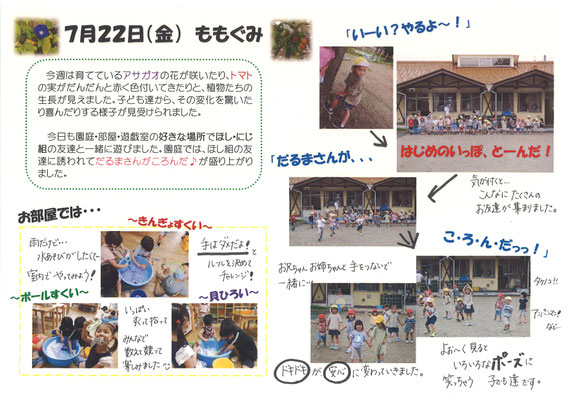 7月22日(金) ももぐみ
今週は育てているアサガオの花が咲いたり、トマト
の実がだんだんと赤く色付いてきたりと、植物たちの
生長が見えました。子ども達から、その変化を驚いた
り喜んだりする様子が見受けられました。
今日も園庭・部屋・遊戯室の好きな場所でほし・にじ
組の友達と一緒に遊びました。園庭では、ほし組の友
達に誘われてだるまさんがころんだ♪が盛り上がり
ました。
お部屋では・・・
~きんぎょすくい~
雨だけど…
水あそびが〝したくて〟
室内でやってみよう!
手はダメだよ!と
ルールを決めて
チャレンジ!
~ボールすくい~
いっぱい
すくって拾って
みんなで
数えて競って
楽しみました
~貝ひろい~
「いーい?やるよ~!」
はじめのいっぽ、とーんだ!
「だるまさんが、、、
気が付くと…
こんなにたくさんの
お友達が集まりました。
こ・ろ・ん・だっっ!」
お兄ちゃんお姉ちゃんと手をつないで
一緒に…
タケノコ!!
アンパンマン!
など…
ドキドキが安心に変わっていきました。
よぉ~く見ると
いろいろなポーズに
笑っちゃう子ども達です。